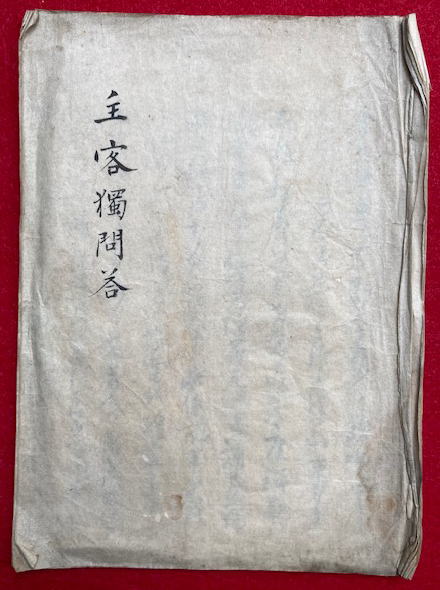 主客獨問答